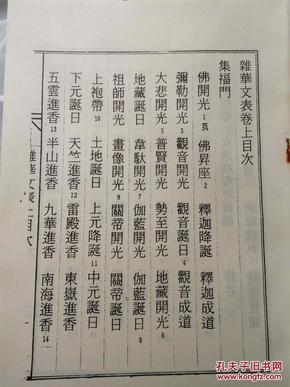 雜華文表卷上目次
集福門
佛開光 1頁 佛昇座 2 釋迦降誕 釋迦成道
彌勒開光 3 觀音開光 觀音誕日 4 觀音成道
大悲開光 5 普賢開光 勢至開光 地藏開光 6
地藏誕日 韋馱開光 7 伽藍開光 伽藍誕日 8
祖師開光 畫像開光 9 關帝開光 關帝誕日
上袍帶 10 土地誕日 上元降誕 11 中元誕日
下元誕日 天竺進香 12 雷殿進香 東嶽進香
五雲進香 13 半山進香 九華進香 南海進香 14
雜華文表上目次
孔夫子旧书网